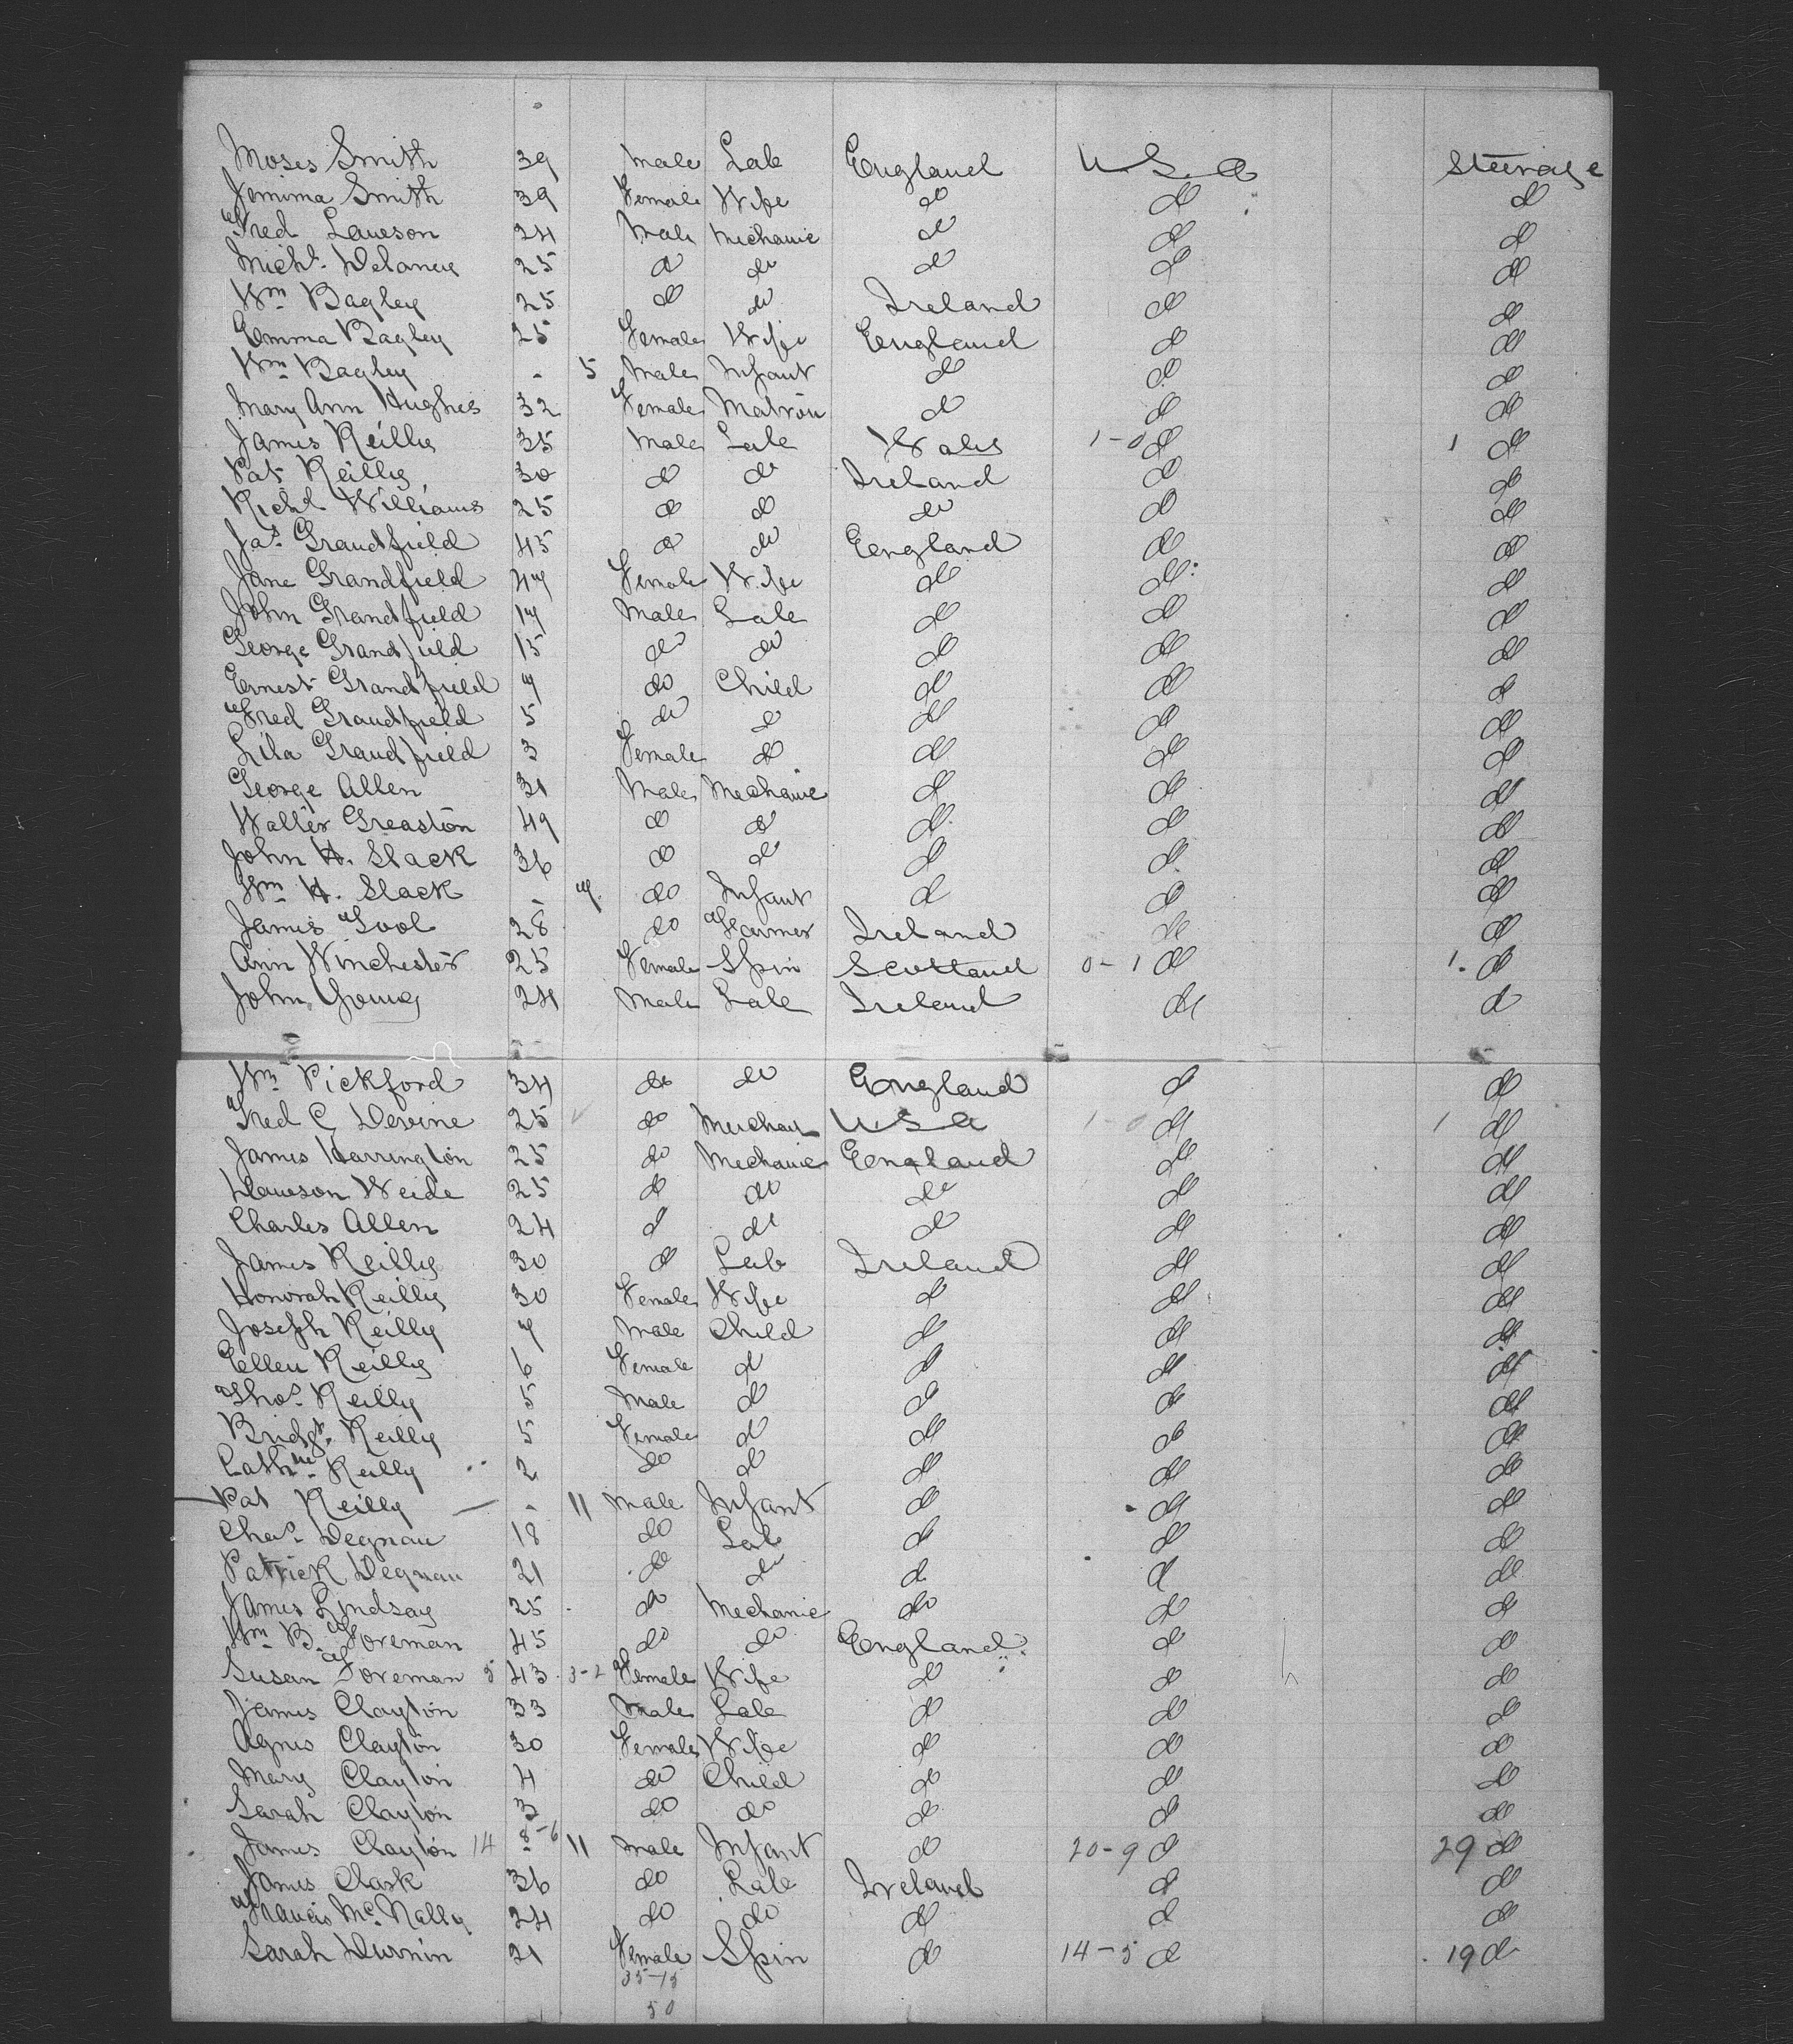 Moses Smith 39 Male Lab England U.S.A Steerage
Jemima Smith 39 Female Wife do do do
Fred Laweson 24 Male Mechanic do do do
Michl. Delaney 25 do do do do do
Wm Bagley 25 do do Ireland do do
Emma Bagley 25 Female Wife England do do
Wm Bagley - 5 Male Infant do do do
Mary Ann Hughes 32 Female Matron do do do
James Reilly 35 Male Lab Wales 1-0 do 1 do
Pat Reilly 30 do do Ireland do do
Richd Williams 25 do do do do do
Jas. Grandfield 45 do do England do do
Jane Grandfield 47 Female Wife do do do
John Grandfield 17 Male Lab do do do
George Grandfield 15 do do do do do
Ernest Grandfield 7 do Child do do do
Fred Grandfield 5 do do do do do
Lila Grandfield 3 Female do do do do
George Allen 31 Male Mechanic do do do
Walter Greaston 49 do do do do do
John H. Slack 36 do do do do do
Wm H. Slack - 7. do Infant do do do
James Tool 28 do Farmer Ireland do do
Ann Winchester 25 Female Spin Scotland 0-1 do 1. do
John Young 24 Male Lab Ireland do do
Wm Pickford 34 do do England do do
Fred C Devine 25 do Merchant USA 1-0 do 1 do
James Harrington 25 do Mechanic England do do
Dawson Weide 25 do do do do do
Charles Allen 24 do do do do do
James Reilly 30 do Lab Ireland do do
Honorah Reilly 30 Female Wife do do do
Joseph Reilly 7 Male Child do do do
Ellen Reilly 6 Female do do do do
Thos. Reilly 5 Male do do do do
Bridgt. Reilly 5 Female do do do do
Cathne. Reilly 2 do do do do do
Pat Reilly - 11 Male Infant do do do
Chas. Degnan 18 do Lab do do do
Patrick Degnan 21 do do do do do
James Lindsay 25 do Mechanic do do do
Wm B. Foreman 45 do do England do do
Susan Foreman 5 43 3-2 Female Wife do do do
James Clayton 33 Male Lab do do do
Agnes Clayton 30 Female Wife do do do
Mary Clayton 4 do Child do do do
Sarah Clayton 3 do do do do do
James Clayton 14 8-6 - 11 Male Infant do 20-9 do 29 do
James Clark 36 do Lab Ireland do do
Francis McNally 24 do do do do do
Sarah Durnin 21 Female Spin do 14-5 do 19 do
35-15
50